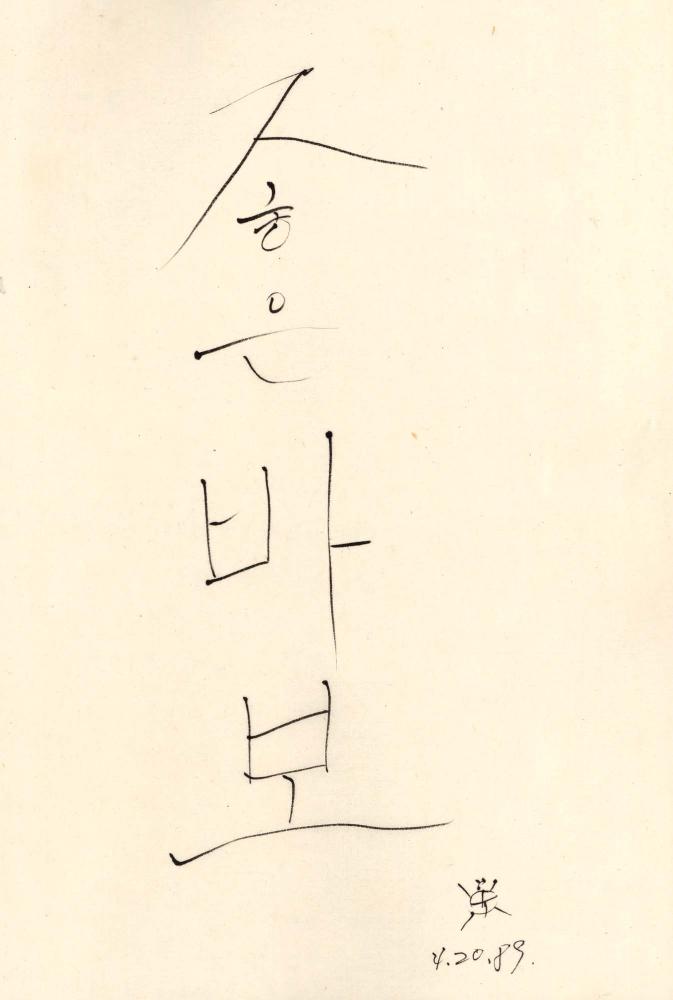 좋은바보
4.20.89.